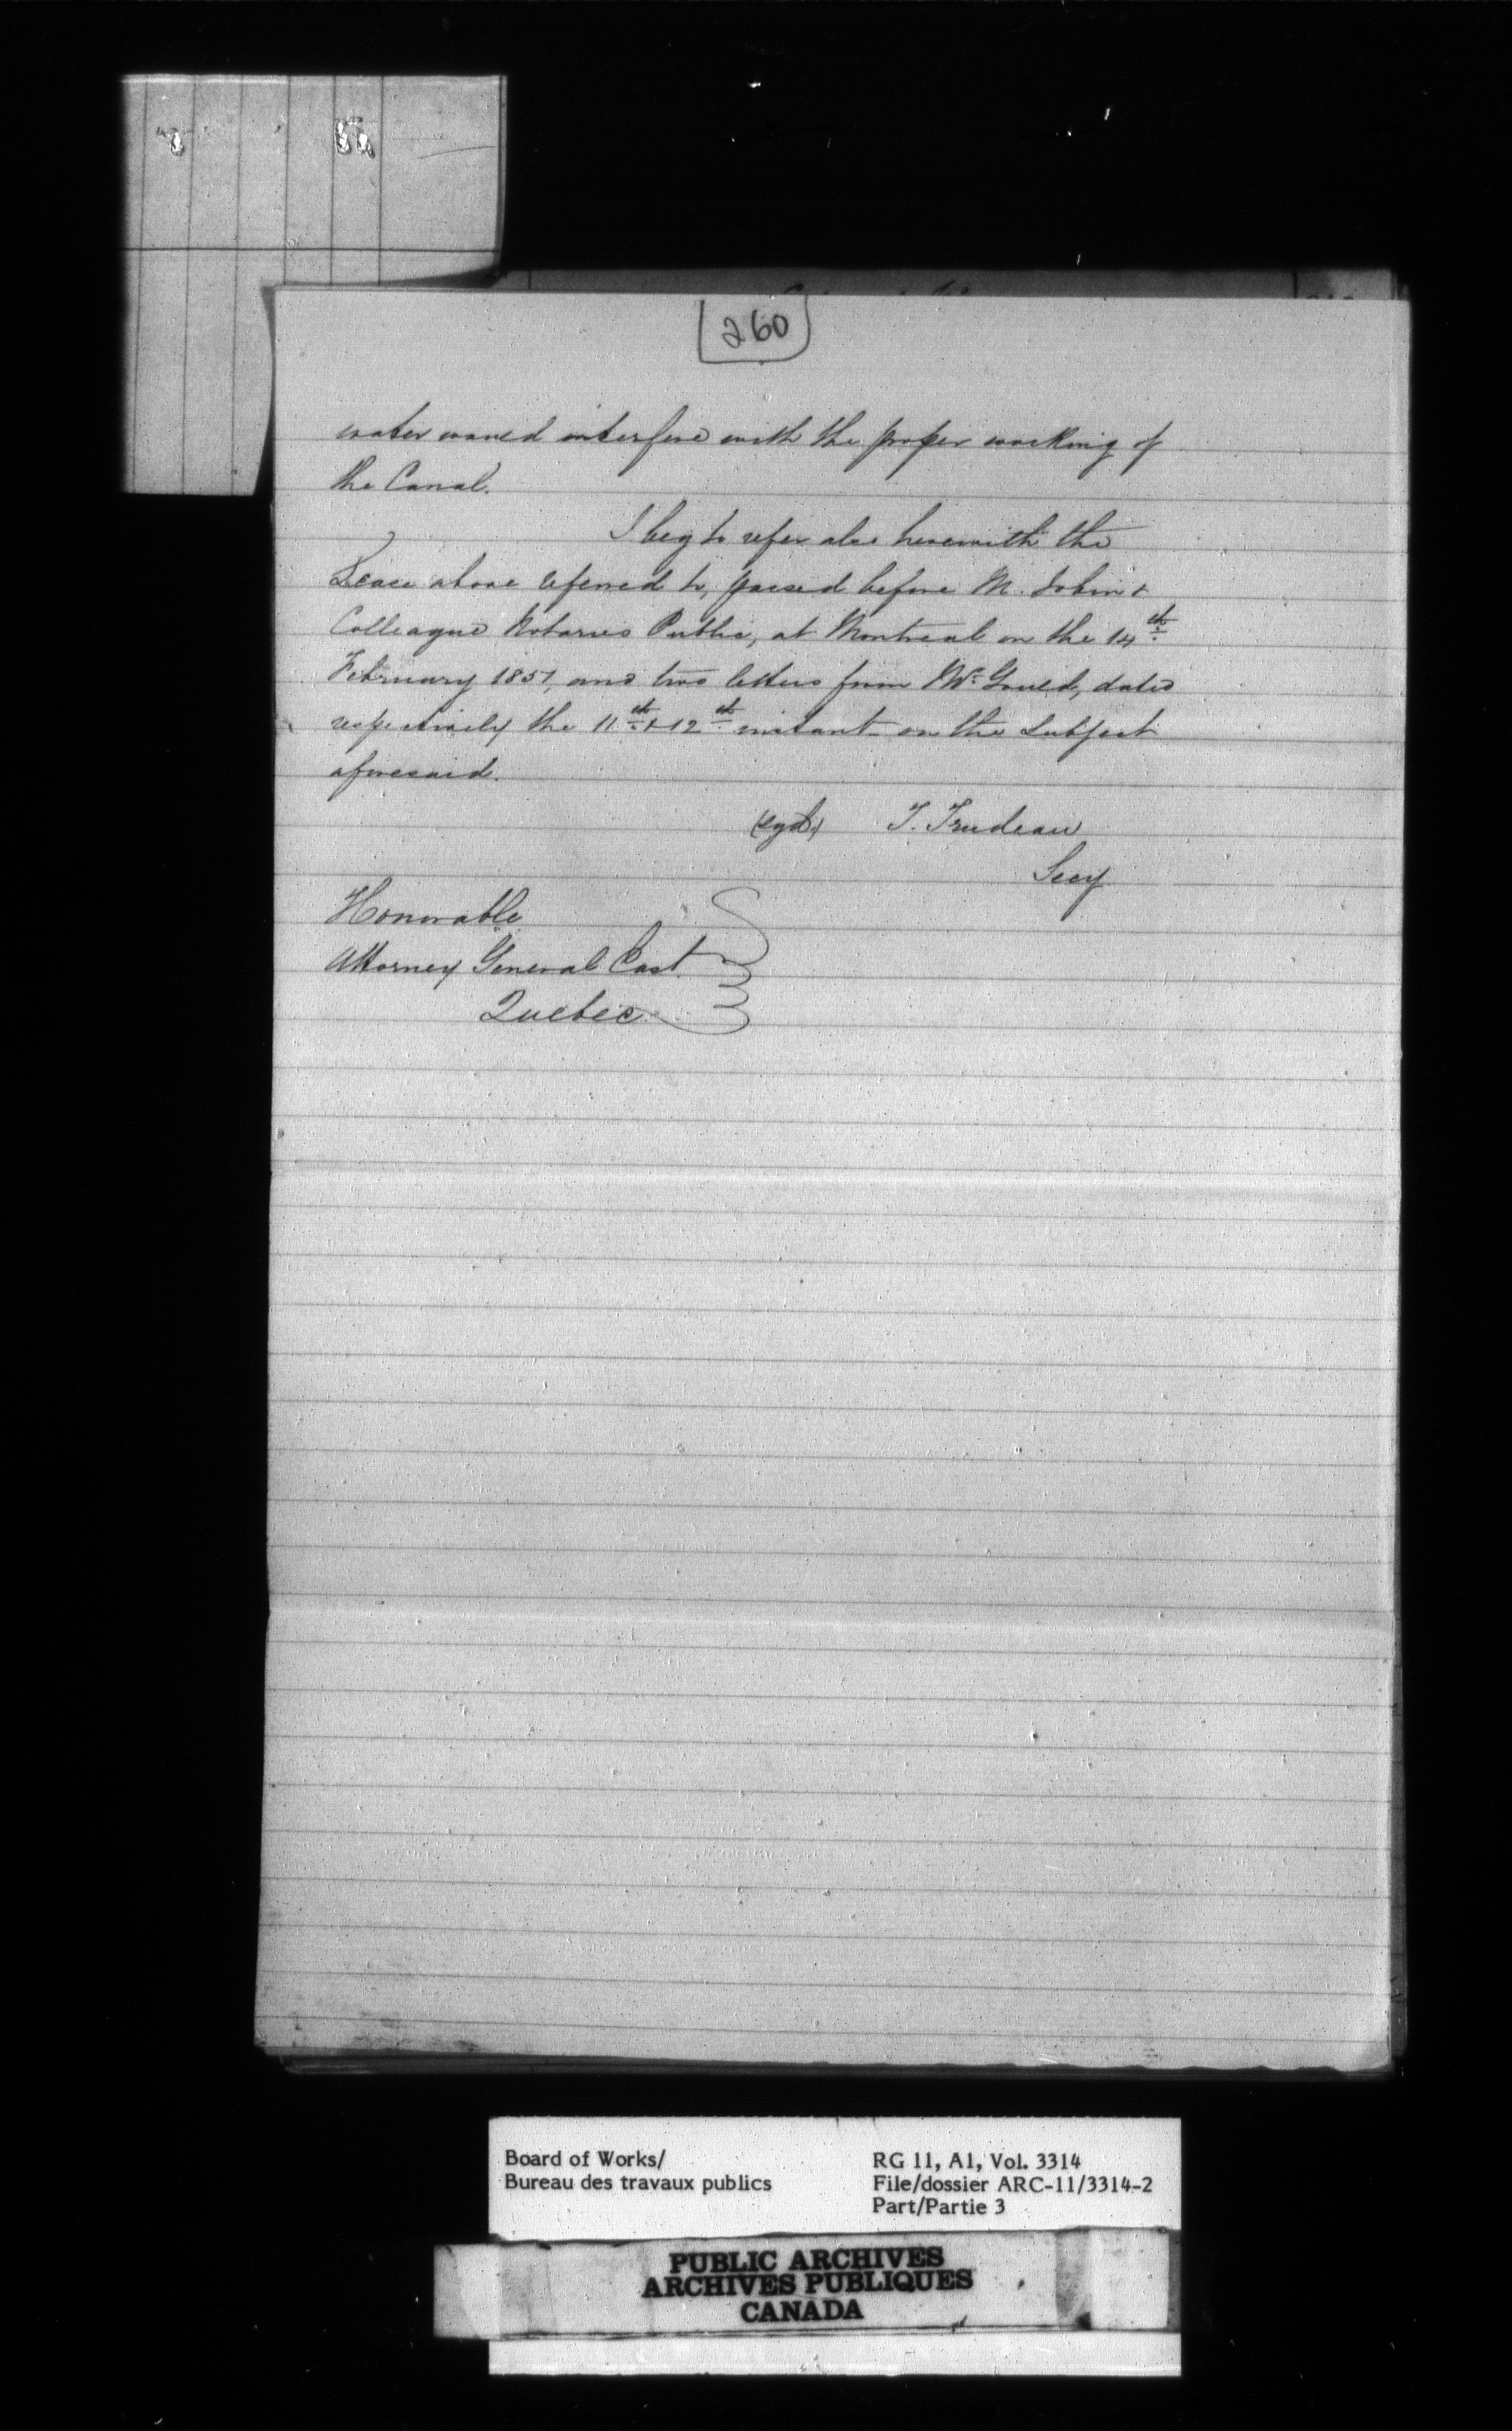 260
water would interfere with the proper working of
the Canal.
I beg to refer also herewith the
Lease above referred to, passed before M. Jobin &
Colleague Notaries Public, at Montreal on the 14th
February 1851, and two letters from Gould, dated
respectively the 11th & 12th instant on the Subject
aforesaid.
(sgd) T. Trudeau
Secy
Honorable
Attorney General East
Quebec
Board of Works/
Bureau des travaux publics
RG 11, A1, Vol. 3314
File/dossier ARC-11/3314-2
Part/Partie 3
PUBLIC ARCHIVES
ARCHIVES PUBLIQUES
CANADA